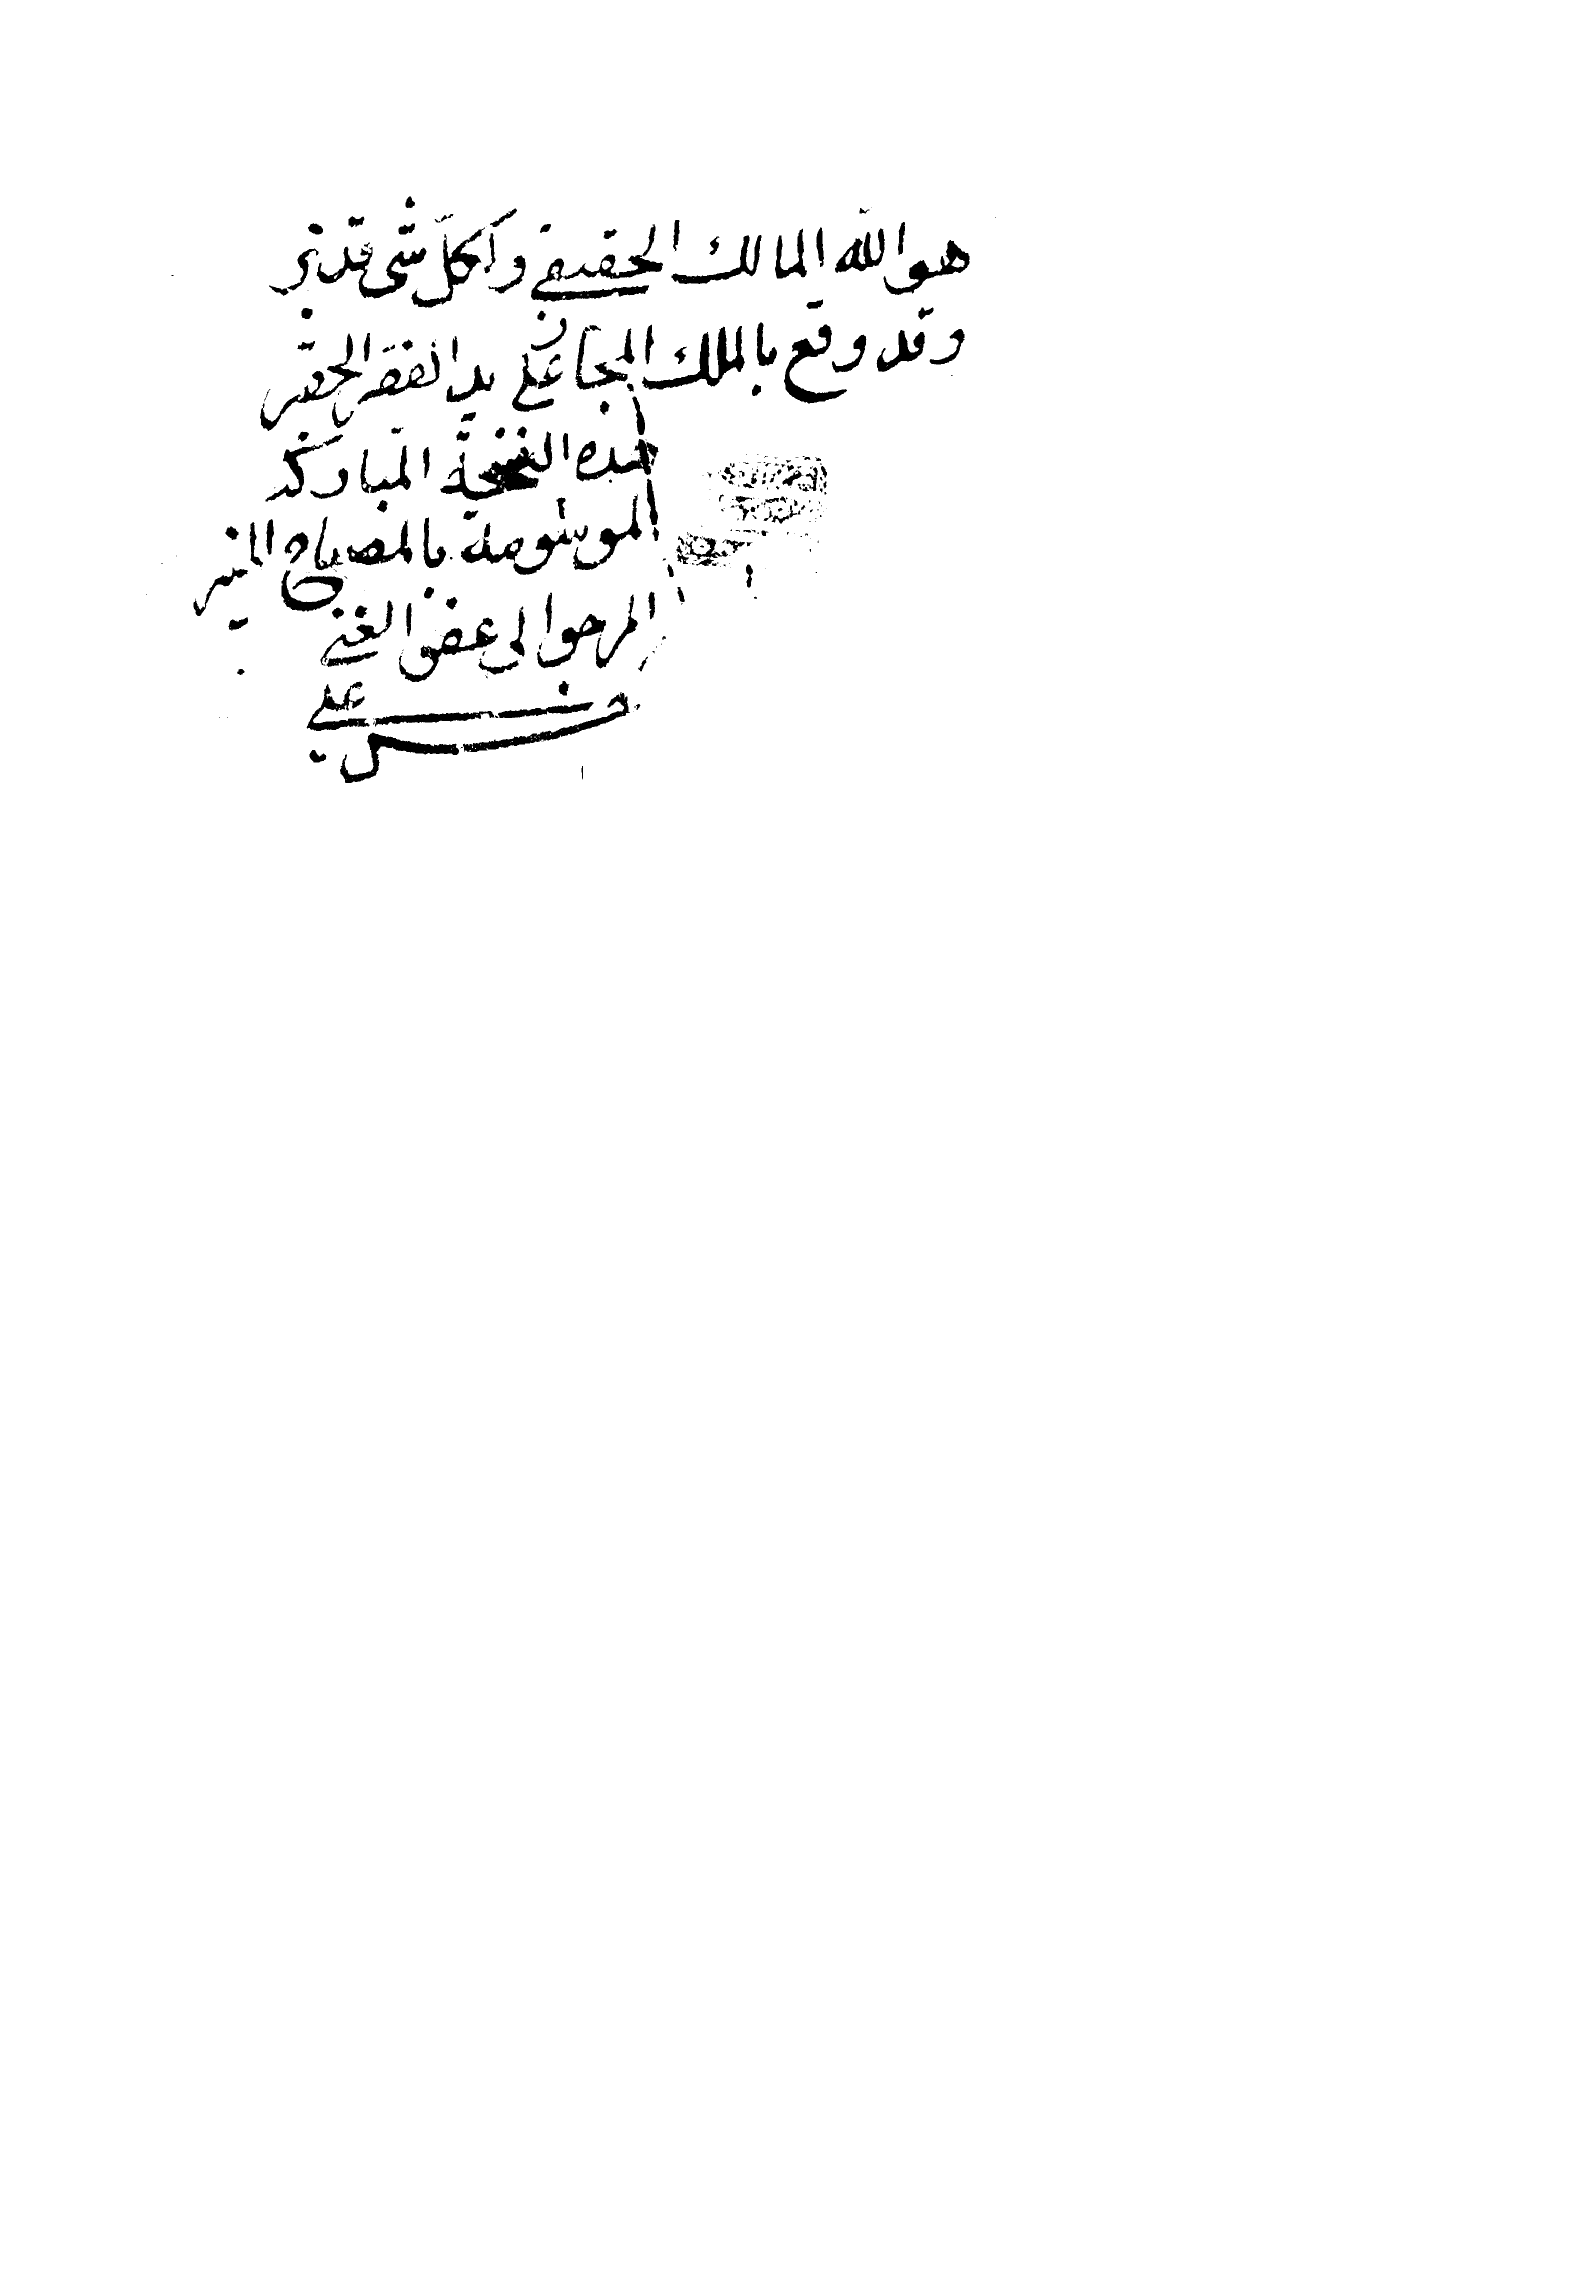 هو الله المالك الحقيقي و لكل شي قدير
وقد وقع بالملك المجازي على يد الفقير الحقير
هذه النسخة المباركة
الموسومة بالمصباح المنير
المرجو الى عفو الغني
حسن علي